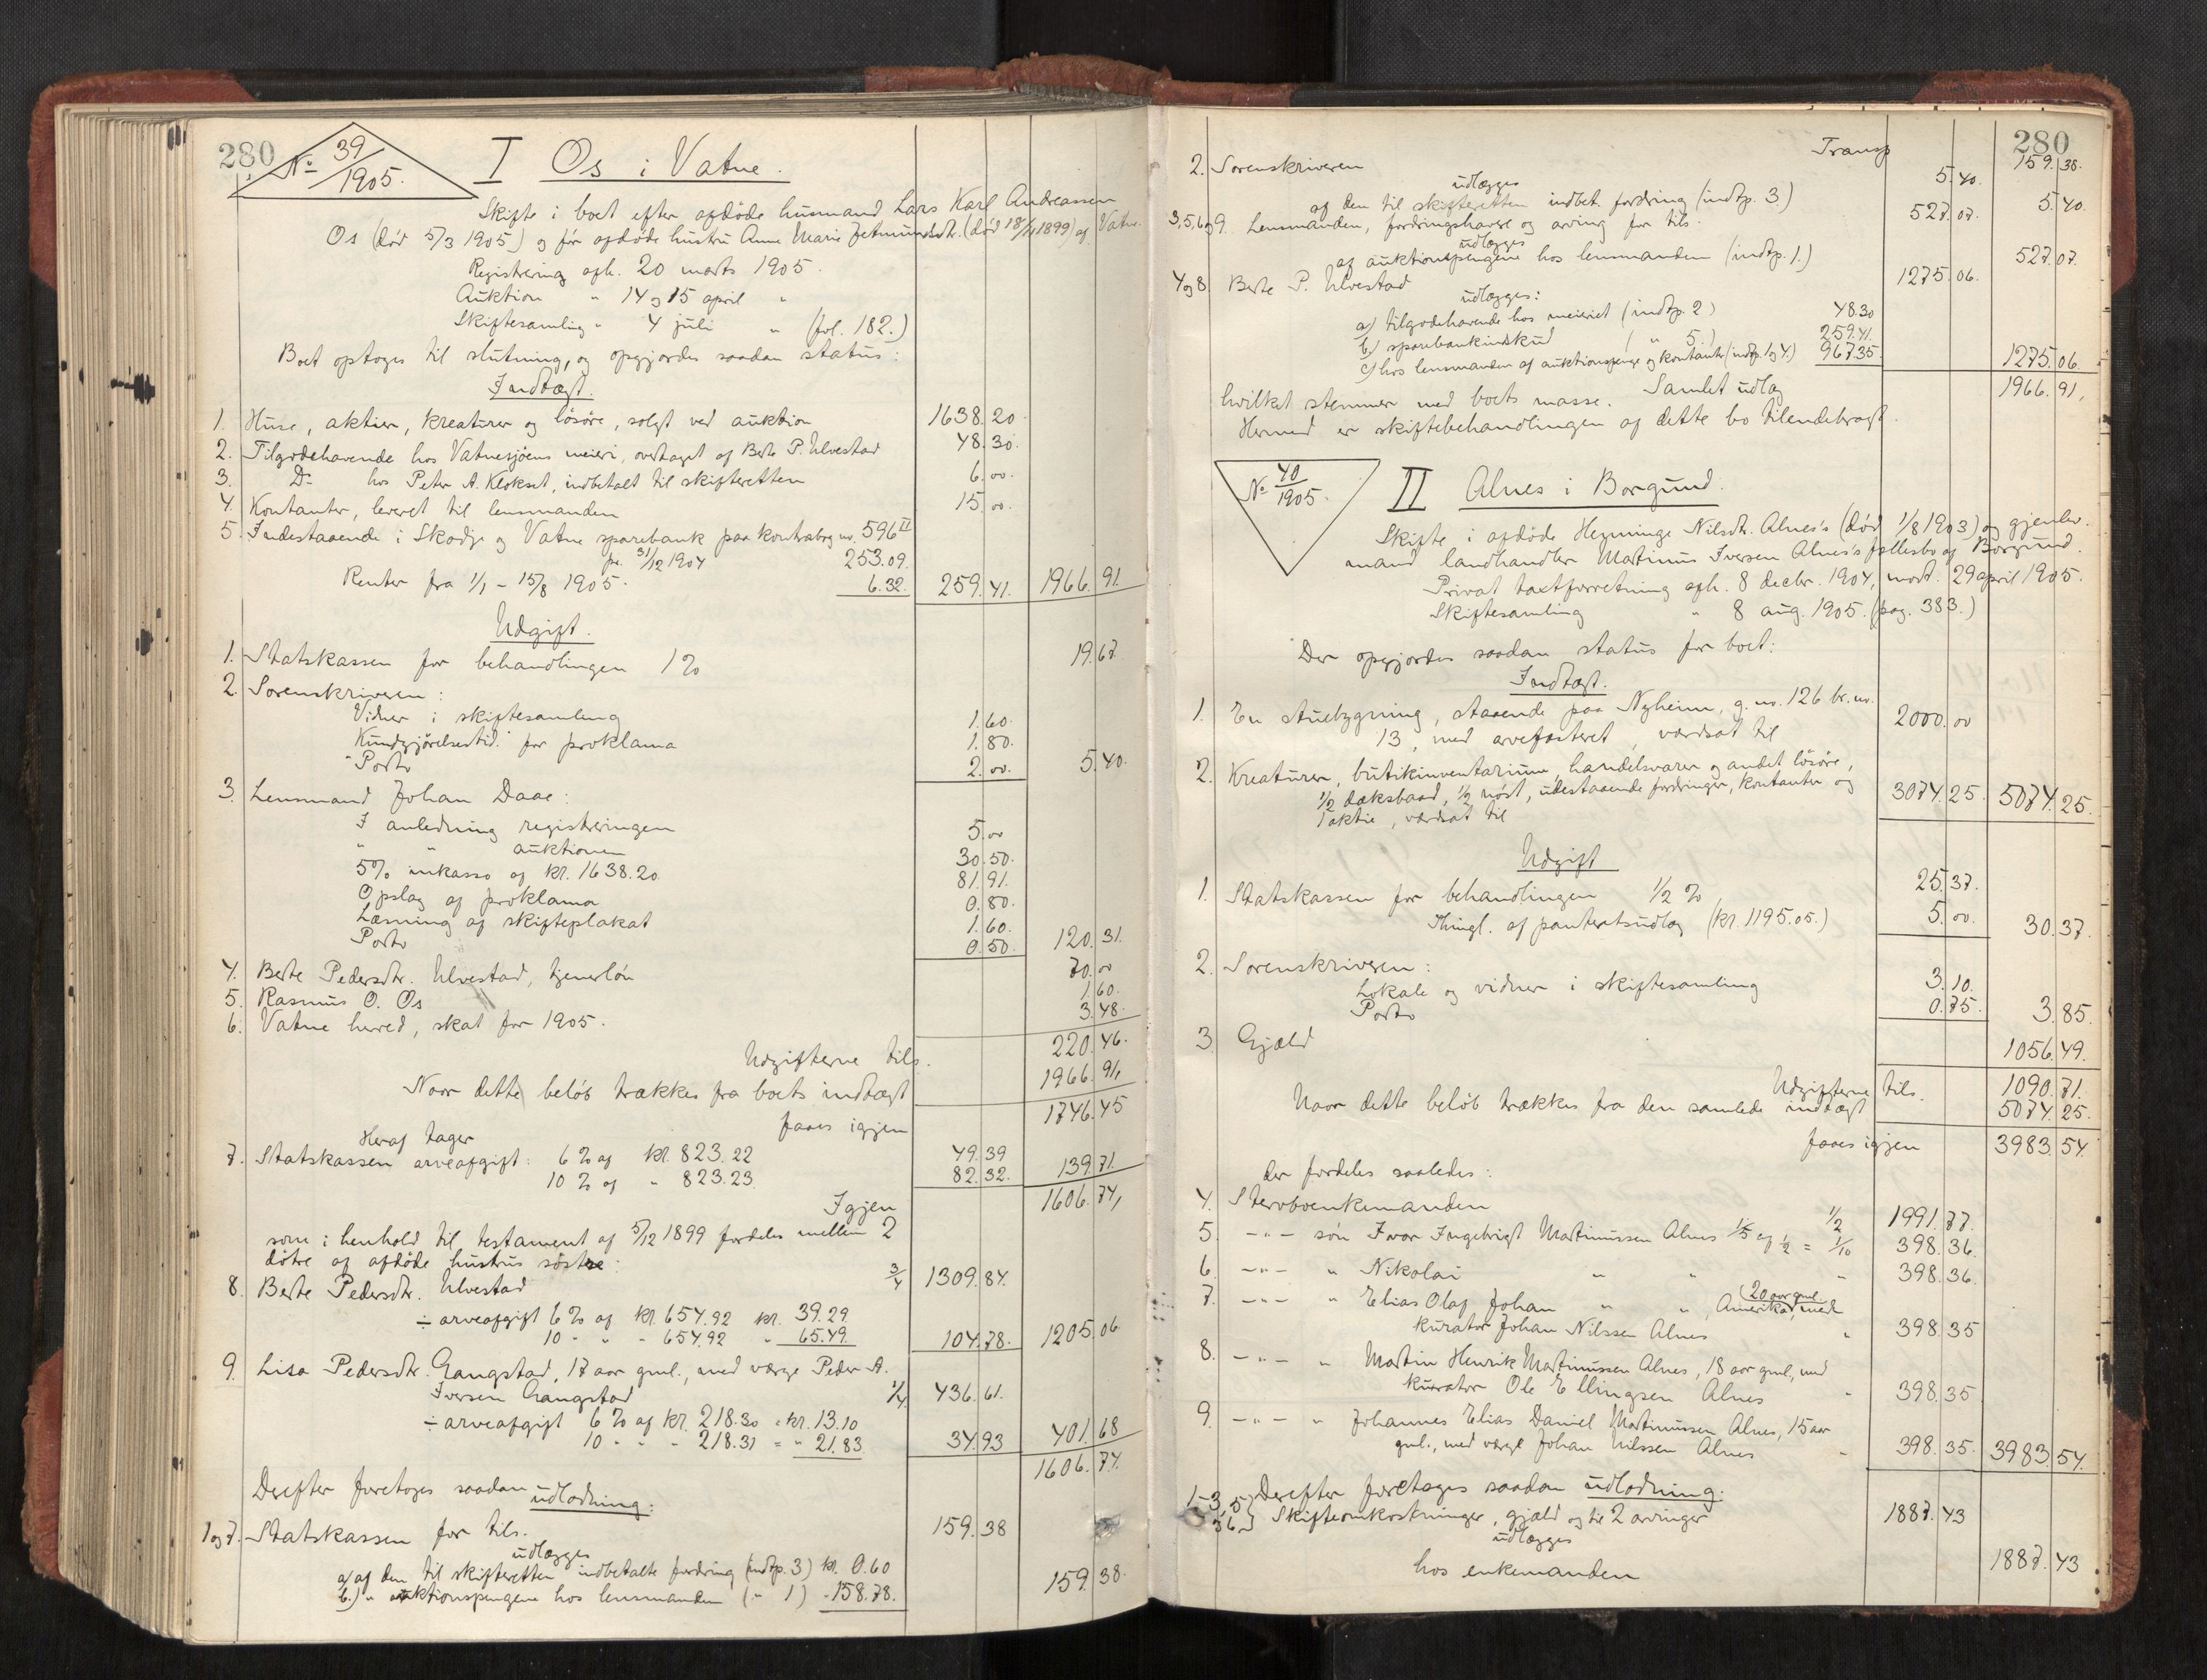 280
No 39/1905.
I Os i Vatne.
Skifte i boet efter afdöde husmand Lars Karl Andreassen
Os (död 5/3 1905) og för afdöde hustru Anne Marie (död 18/4 1899) af Vatne.
Registrering afh. 20 marts 1905.
Auktion " 14 og 15 april "
Skiftesamling " 4 juli " (fol. 182.)
Boet optoges til slutning, og opgjordes saadan status:
Indtægt.
1. Huse, aktier, kreaturer og lösöre, solgt ved auktion 1638.20
2. Tilgodehavende hos Vatnesjöens meieri, overtaget af Berte P. Ulvestad 48.30.
3. Do hos Peter A. Klokset, indbetalt til skifteretten 6.00.
4. Kontanter, leveret til lensmanden 15.00.
5. Indestaaende i Skodje og Vatne sparebank paa kontrabog no. 596 II
pr. 31/12 1904 253.09.
Renter fra 1/1 – 15/8 1905. 6.32. 259.41. 1966.91.
Udgift.
1. Statskassen for behandlingen 1 % 19.67.
2. Sorenskriveren:
Vidner i skiftesamling 1.60.
Kundgjörelsestid. for proklama 1.80.
Porto 2.00. 5.40.
3. Lensmand Johan Daae:
I anledning registreringen 5.00
" " auktionen 30.50.
5% inkasso af kr. 1638.20 81.91.
Opslag af proklama 0.80.
Læsning af skifteplakat 1.60.
Porto 0.50. 120.31.
4. Berte Pedersdtr. Ulvestad, tjenerlön 70.00
5. Rasmus O. Os 1.60.
6. Vatne herred, skat for 1905. 3.48.
Udgifterne tils. 220.46.
Naar dette belöb trækkes fra boets indtægt 1966.91,
faaes igjen 1746.45
Heraf tager
7. Statskassen arveafgift: 6 % af kr. 823.22 49.39
10 % af " 823.23 82.32. 139.71.
Igjen 1606.74,
som i henhold til testament af 5/12 1899 fordeles mellem 2
dötre af afdöde hustrus söstre:
8. Berte Pedersdtr. Ulvestad 3/4 1309.84.
÷ arveafgift 6 % af kr. 654.92 kr. 39.29
10 " " " 654.92 " 65.49. 104.78. 1205.06
9. Lisa Pedersdtr. Gangstad, 17 aar gml., med værge Peder A.
Iversen Gangstad 1/4 436.61.
÷ arveafgift 6 % af kr. 218.30 = kr. 13.10
10 " " " 218.31 = " 21.83. 34.93 401.68
1606.74.
Derefter foretoges saadan udlodning:
1 og 7. Statskassen for tils. 159.38
udlægges
a) af den til skifteretten indbetalte fordring (indtp. 3) kr. 0.60
b.) " auktionspengene hos lensmanden ( " 1) " 158.78. 159.38.
280
Transp 159.38.
2. Sorenskriveren 5.40.
udlægges
af den til skifteretten indbet. fordring (indtp. 3.) 5.40.
3, 5, 6 og 9. Lensmanden, fordringshavere og arving for tils. 527.07.
udlægges
af auktionspengene hos lensmanden (indtp. 1.) 527.07.
4 og 8. Berte P. Ulvestad 1275.06.
udlægges:
a) tilgodehavende hos meieriet (indtp. 2) 48.30
b.) sparebankindskud ( " 5.) 259.41.
c) hos lensmanden af auktionspenge og kontanter (indtp. 1 og 4.) 967.35. 1275.06.
Samlet udlæg 1966.91,
hvilket stemmer med boets masse.
Hermed er skiftebehandlingen af dette bo tilendebragt.
No 40/1905.
II Alnes i Borgund.
Skifte i afdöde Henninge Nilsdtr. Alnes's (död 1/8 1903) og gjenlev.
mand landhandler Martinus Iversen Alnes's fællesbo af Borgund.
Privat taxtforretning afh. 8 decbr. 1904, modt. 29 april 1905.
Skiftesamling " 8 aug. 1905. (pag. 383.)
Der opgjordes saadan status for boet:
Indtægt.
1. En stuebygning, staaende paa Nyheim, g. no. 126 br. no.
13, med arvefæsteret, værdsat til 2000.00
2. Kreaturer, butikinventarium, handelsvarer og andet lösöre,
1/2 dæksbaad, 1/2 nöst, udestaaende fordringer, kontanter og
1 aktie, værdsat til 3074.25 5074.25.
Udgift
1. Statskassen for behandlingen 1/2 % 25.37.
Thingl. af panteretsudlæg (kr. 1195.05.) 5.00. 30.37.
2. Sorenskriveren:
Lokale og vidner i skiftesamling 3.10.
Porto 0.75. 3.85.
3. Gjæld 1056.49.
Udgifterne tils. 1090.71.
Naar dette belöb trækkes fra den samlede indtægt 5074.25.
faaes igjen 3983.54.
der fordeles saaledes:
4. Stervboenkemanden 1/2 1991.77.
5. – " – sön Ivar Ingebrigt Martinussen Alnes 1/5 af 1/2 = 1/10 398.36.
6. – " – " Nikolai " " " 398.36.
7. – " – " Elias Olaf Johan " " (20 aar gml. Amerika, med
kurator Johan Nilssen Alnes " 398.35
8. – " – " Martin Henrik Martinussen Alnes, 18 aar gml., med
kurator Ole Ellingsen Alnes " 398.35
9. – " – " Johannes Elias Daniel Martinussen Alnes, 15 aar
gml., med værge Johan Nilssen Alnes " 398.35. 3983.54.
Derefter foretages saadan udlodning:
1-3, 5 } Skifteomkostninger, gjæld og til 2 arvinger 1887.43
36 }
udlægges
hos enkemanden 1887.43